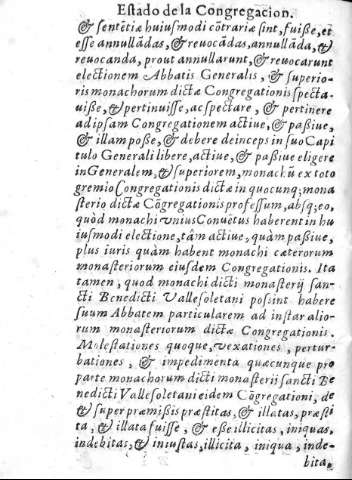 Estado de la Congregacion.
& sentētiæ huiusmodi cōtrariæ sint, fuiße, et
esse annullādas, & reuocādas, annullāda, &
reuocanda, prout annullarunt, & reuocarunt
electionem Abbatis Generalis, & superio-
ris monachorum dictæ Congregationis specta-
uiße, & pertinuisse, ac spectare, & pertinere
ad ipsam Congregationem actiue, & paßiue,
& illam poße, & debere deinceps in suo Capi
tulo Generali libere, actiue, & paßiue eligere
in Generalem, & superiorem, monachū ex toto
gremio Congregationis dictæ in quocunq; mona
sterio dictæ Cōgregationis professum, absq; eo,
quòd monachi vnius Conuētus haberent in hu
iusmodi electione, tàm actiue, quàm paßiue,
plus iuris quàm habent monachi cæterorum
monasteriorum eiusdem Congregationis. Ita
tamen, quod monachi dicti monasterij san-
cti Benedicti Vallesoletani possint habere
suum Abbatem particularem ad instar alio-
rum monasteriorum dictæ Congregationis.
Molestationes quoque, vexationes, pertur-
bationes, & impedimenta quæcunque pro
parte monachorum dicti monasterij sancti Be
nedicti Vallesoletani eidem Cōgregationi, de
& super præmißis præstitas, & illatas, præsti
ta, & illata fuisse, & eße illicitas, iniquas,
indebitas, & iniustas, illicita, iniqua, inde-
bita,